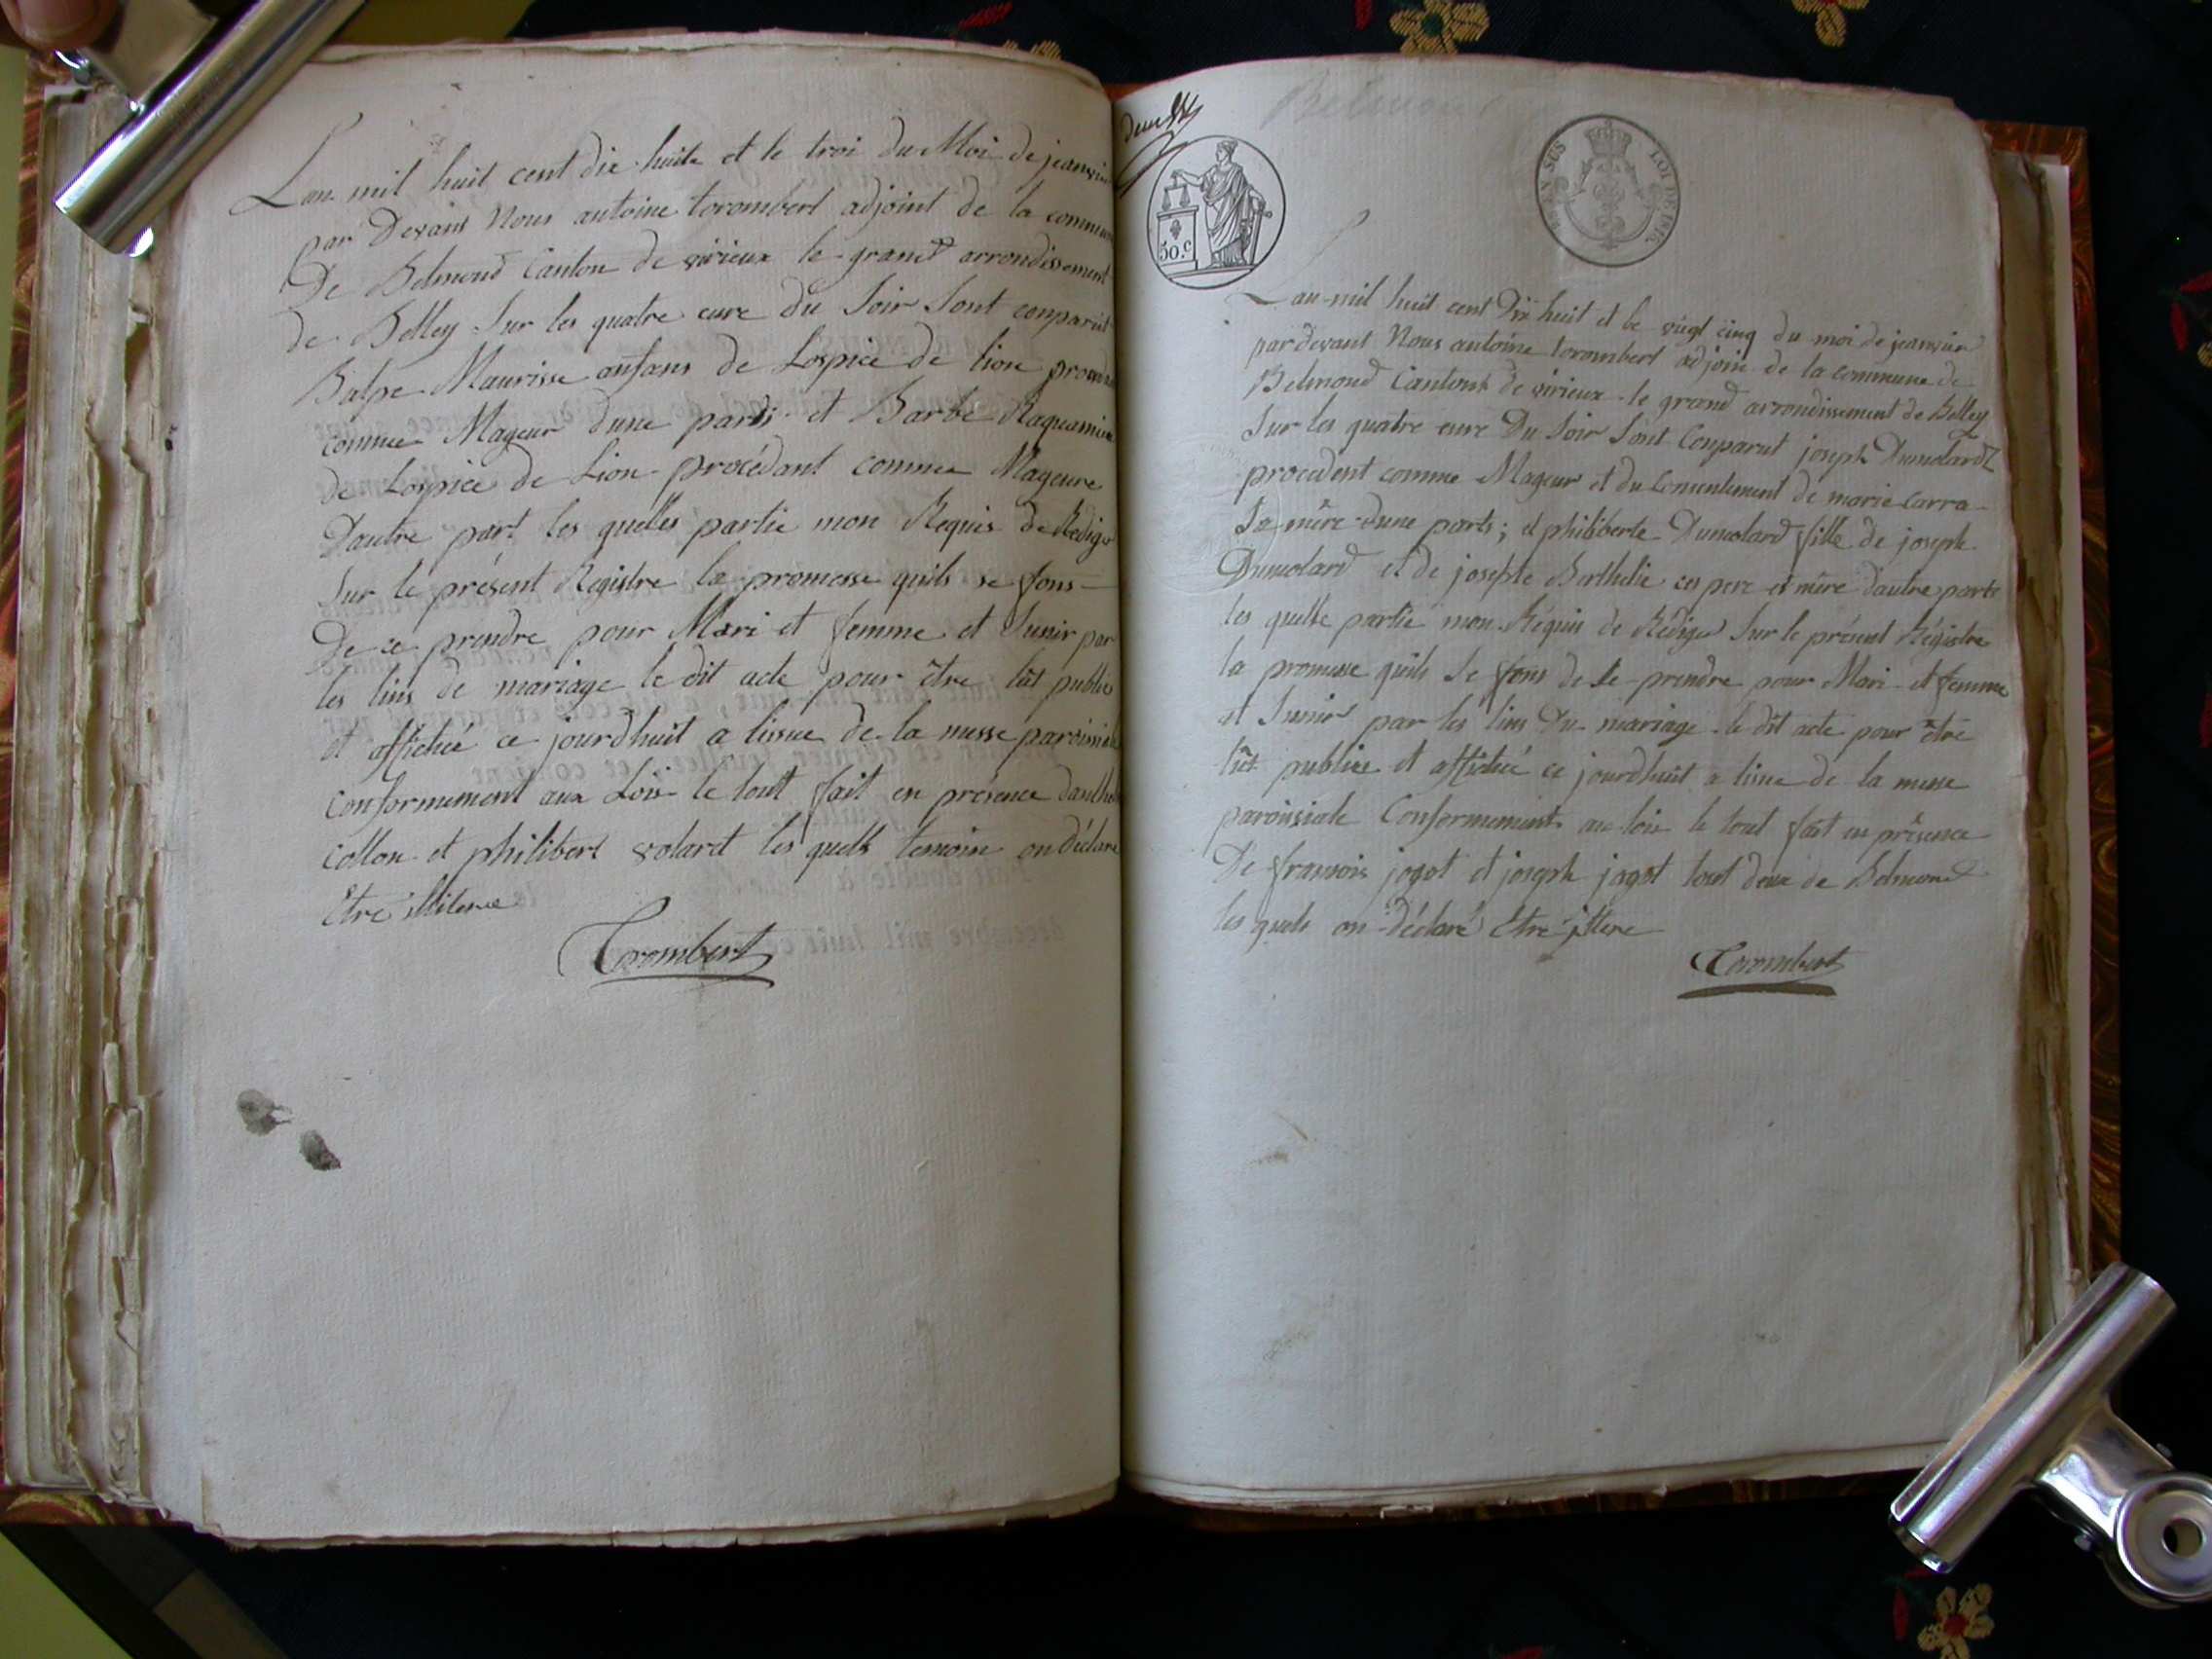 Lan mil huit cent dix huite et le troi du Moi de jeanvier
par Devant Nous antoine torombert adjoint de la commune
De Belmond Canton de virieux le grand arrondissement
de Belley Sur les quatre eure du Soir Sont conparut
Balpe Maurisse anfans de Lospice de lion
comme Mageur dune parts et Barbe
de Lospice de Lion procédant comme Mageure
Dautre part les quelles partie mon Requis de Rediger
Sur le présent Registre la promesse quils se fons
De ce prendre pour Mari et femme et Sunir par
les lins de mariage le dit acte pour être lût publié
et affichié ce jourdhuit a lissue de la messe paroissiale
conformement aux Lois le tout fait en présence
collon et philibert volard les quells temoin on déclare
Etre illitere
Torombert
deux
50.c
LOI DE 1816.
Belmond
Lan mil huit cent Dix huit et le vingt cinq du moi de jeanvier
par devant Nous antoine torombert adjoin de la commune de
Belmond Cantont de virieux le grand arrondissement de Belley
Sur les quatre eure Du Soir Sont Conparut joseph Dumolard
procedent comme Mageur et du Consentement de marie Carra
Sa mêre dune parts; et philiberte Dumolard fille de joseph
Dumolard et de josephte Berthelie ces pere et mêre dautre parts
les quelle partie mon Réquis de Rédiger Sur le présent Régistre
la promesse quils Se fons de Se prendre pour Mari et femme
et Sunir par les lins Du mariage le dit acte pour être
lût publiée et affichié ce jourdhuit a lisue de la messe
paroisiale Conformement au lois le tout fait en présence
De franvois jogot et joseph jagot tout deux de Belmond
les quels on déclaré Etre jllere
Torombert